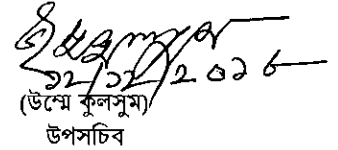 ১২/১২/২০১৮
(উম্মে কুলসুম)
উপসচিব